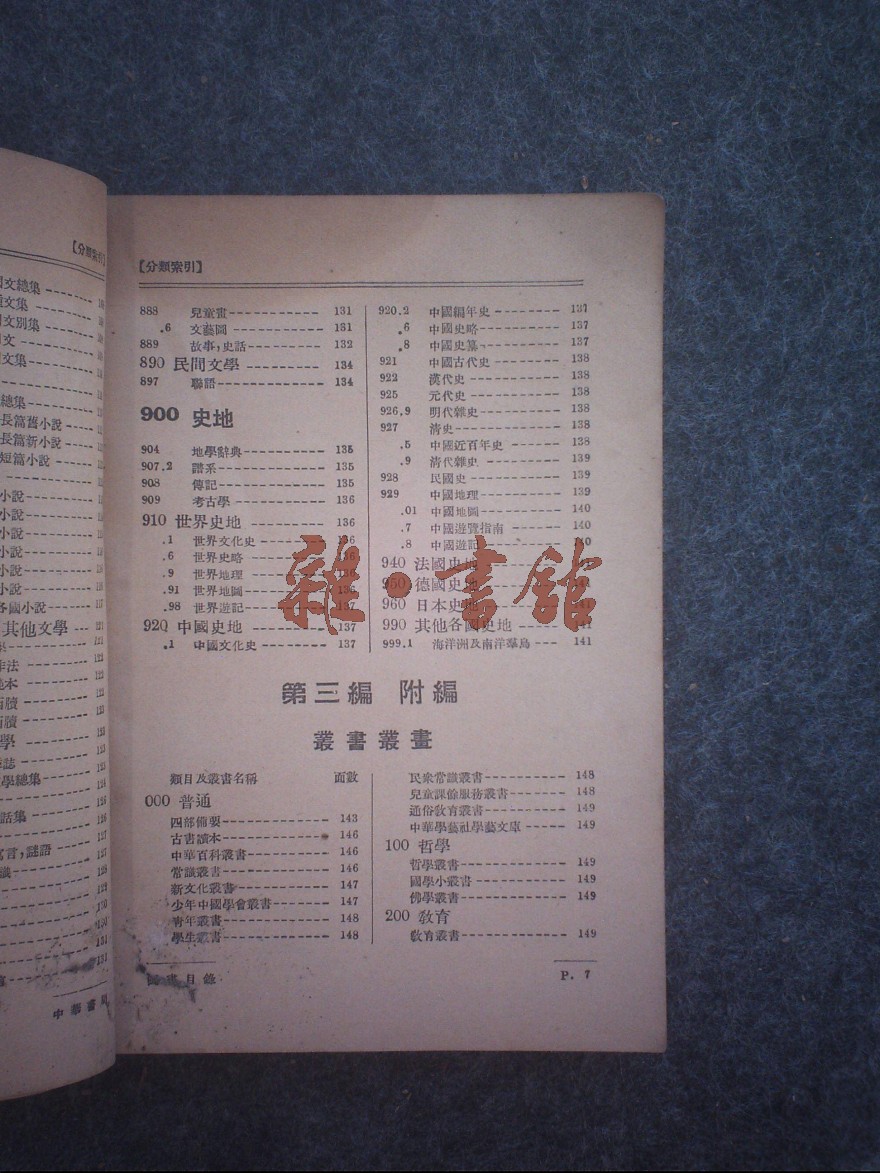 【分類索引】
888 兒童畫 131
.6 文藝圖 131
889 故事，史話 132
890 民間文學 134
897 聯語 134
900 史地
904 地學辭典 135
907.2 譜系 135
908 傳記 135
909 考古學 136
910 世界史地 136
.1 世界文化史 136
.6 世界史略
.9 世界地理 136
.91 世界地圖 136
.98 世界遊記 137
920 中國史地 137
.1 中國文化史 137
920.2 中國編年史 137
.6 中國史略 137
.8 中國史纂 137
921 中國古代史 138
922 漢代史 138
925 元代史 138
926.9 明代雜史 138
927 清史 138
.5 中國近百年史 138
.9 清代雜史 139
928 民國史 139
929 中國地理 139
.01 中國地圖 140
.7 中國遊覽指南 140
.8 中國遊記 140
940 法國史地
950 德國史地 141
960 日本史地 141
990 其他各國史地 141
999.1 海洋洲及南洋羣島 141
雜·書館
第三編 附編
叢書叢畫
類目及叢書名稱 面數
000 普通
四部備要 143
古書讀本 146
中華百科叢書 146
常識叢書 146
新文化叢書 147
少年中國學會叢書 147
青年叢書 148
學生叢書 148
民衆常識叢書 148
兒童課餘服務叢書 148
通俗教育叢書 149
中華學藝社學藝文庫 149
100 哲學
哲學叢書 149
國學小叢書 149
佛學叢書 149
200 教育
教育叢書 149
圖書目錄 P. 7
【分類索引】
文總集
文集
文別集
文
文集
總集
長篇舊小說
長篇新小說
短篇小說
小說
小說
小說
小說
小說
小說
各國小說
其他文學 121
作法
牘
牘
學
誌
學總集
話集
寓言，謎語
中華書局